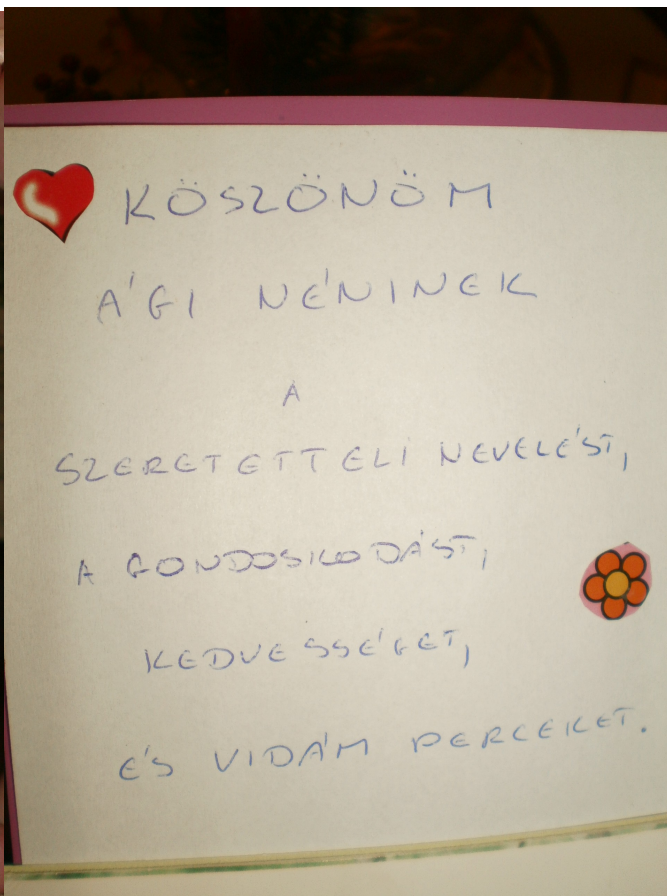 KÖSZÖNÖM
ÁGI NÉNINEK
A
SZERETETTELI NEVELÉST,
A GONDOSKODÁST,
KEDVESSÉGET,
ÉS VIDÁM PERCEKET.